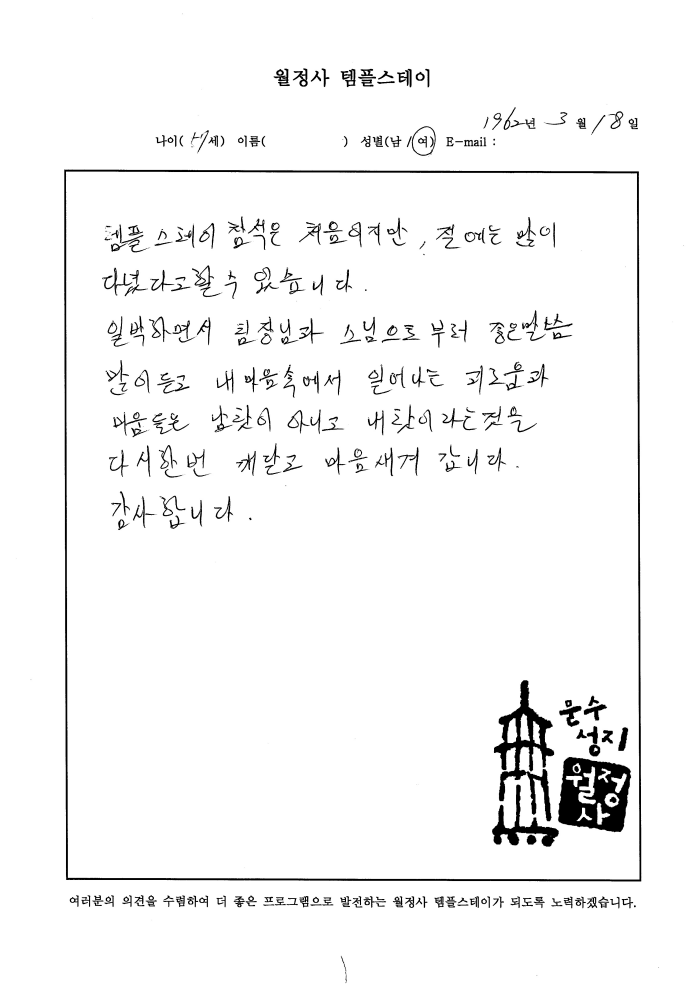 월정사 템플스테이
1962년 3 월 18 일
나이( 57세) 이름( ) 성별(남 / 여) E-mail :
템플 스테이 참석은 처음이지만, 절에는 많이
다녔다고할 수 있습니다.
일박하면서 팀장님과 스님으로 부터 좋은말씀
많이 듣고 내 마음속에서 일어나는 괴로움과
미움들은 남탓이 아니고 내 탓이라는것을
다시한번 깨닫고 마음새겨 갑니다.
감사합니다.
문수
성지
월정
사
여러분의 의견을 수렴하여 더 좋은 프로그램으로 발전하는 월정사 템플스테이가 되도록 노력하겠습니다.